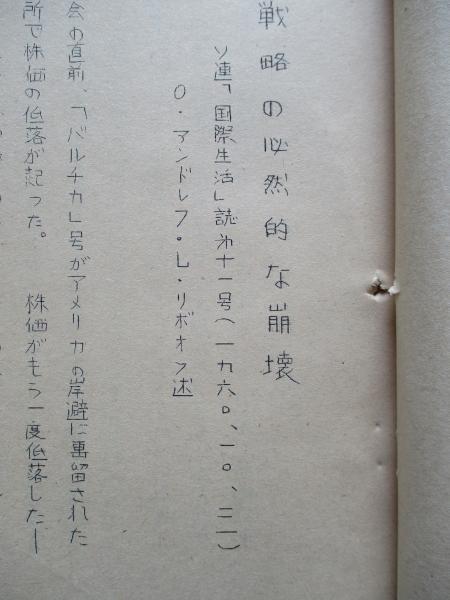 戦略の必然的な崩壊
ソ連「国際生活」誌才十一号(一九六〇、一〇、二一)
O・アンドレフ・L・リボオフ述
会の直前、「バルチカ」号がアメリカの岸避に畱留された
所で株価の低落が起った。 株価がもう一度低落したー